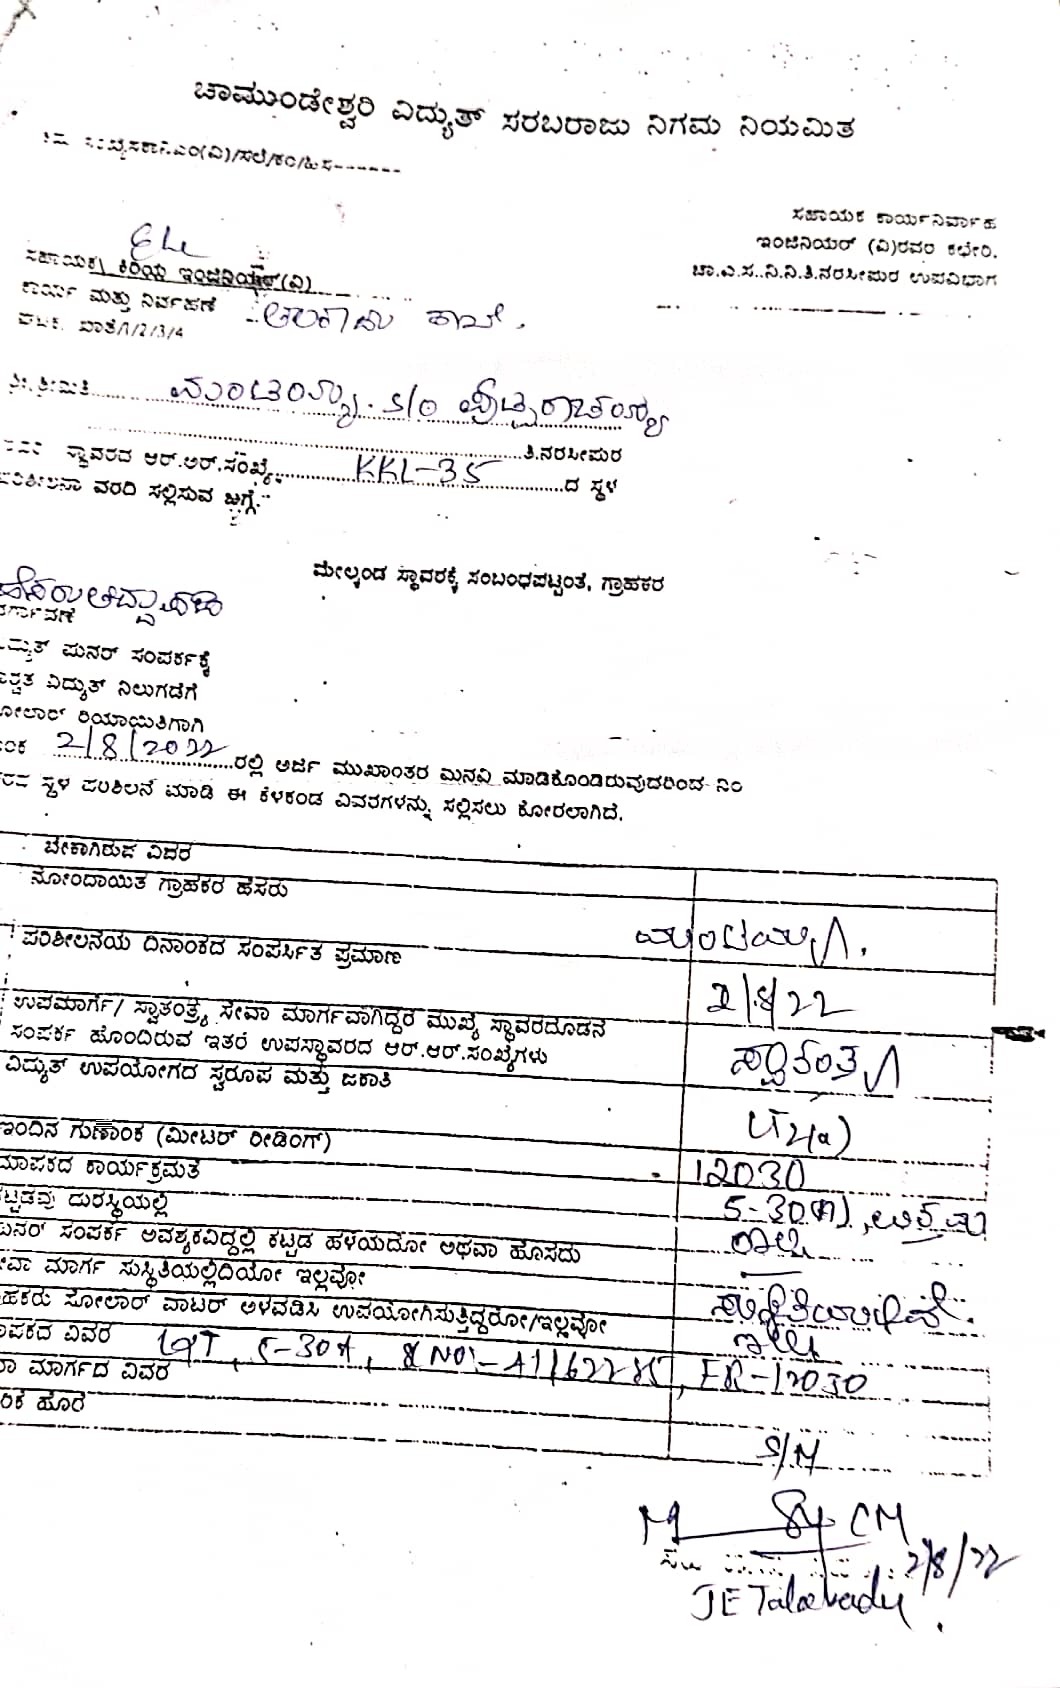 ಚಾಮುಂಡೇಶ್ವರಿ ವಿದ್ಯುತ್ ಸರಬರಾಜು ನಿಗಮ ನಿಯಮಿತ
ಸಹಾಯಕ ಕಾರ್ಯನಿರ್ವಾಹ
ಇಂಜಿನಿಯರ್ (ವಿ)ರವರ ಕಛೇರಿ.
ಚಾ.ವಿ.ಸ.ನಿ.ನಿ.ತಿ.ನರಸೀಪುರ ಉಪವಿಭಾಗ
ಸಹಾಯಕ/ ಕಿರಿಯ ಇಂಜಿನಿಯರ್(ವಿ)
ಕಾರ್ಯ ಮತ್ತು ನಿರ್ವಹಣೆ
ಘಟಕ, ಶಾಖೆ/1/2/3/4
ಶ್ರೀ.ಶ್ರೀಮತಿ........ ಮಂಚಯ್ಯ. S/O ಪುಟ್ಟರಾಚಯ್ಯ
ತಿ.ನರಸೀಪುರ
ಸ್ಥಾವರದ ಆರ್.ಆರ್.ಸಂಖ್ಯೆ KKL-35 ದ ಸ್ಥಳ
ಪರಿಶೀಲನಾ ವರದಿ ಸಲ್ಲಿಸುವ ಬಗ್ಗೆ.
ಮೇಲ್ಕಂಡ ಸ್ಥಾವರಕ್ಕೆ ಸಂಬಂಧಪಟ್ಟಂತೆ, ಗ್ರಾಹಕರ
ಹೆಸರು ಬದ್ಲಾವಣೆ
ರ್ಗಾವಣೆ
ದ್ಯುತ್ ಪುನರ್ ಸಂಪರ್ಕಕ್ಕೆ
ಶ್ವತ ವಿದ್ಯುತ್ ನಿಲುಗಡೆಗೆ
ೋಲಾರ್ ರಿಯಾಯಿತಿಗಾಗಿ
ಂಕ 2/8/2022 ರಲ್ಲಿ ಅರ್ಜಿ ಮುಖಾಂತರ ಮನವಿ ಮಾಡಿಕೊಂಡಿರುವುದರಿಂದ ಸಂ
ಸ್ಥಳ ಪರಿಶೀಲನೆ ಮಾಡಿ ಈ ಕೆಳಕಂಡ ವಿವರಗಳನ್ನು ಸಲ್ಲಿಸಲು ಕೋರಲಾಗಿದೆ.
ಬೇಕಾಗಿರುವ ವಿವರ
ನೋಂದಾಯಿತ ಗ್ರಾಹಕರ ಹೆಸರು
ಮಂಚಯ್ಯ.
ಪರಿಶೀಲನೆಯ ದಿನಾಂಕದ ಸಂಪರ್ಸಿತ ಪ್ರಮಾಣ
2/8/22
ಉಪಮಾರ್ಗ/ ಸ್ವಾತಂತ್ರ್ಯ ಸೇವಾ ಮಾರ್ಗವಾಗಿದ್ದರೆ ಮುಖ್ಯ ಸ್ಥಾವರದೊಡನೆ
ಸಂಪರ್ಕ ಹೊಂದಿರುವ ಇತರೆ ಉಪಸ್ಥಾವರದ ಆರ್.ಆರ್.ಸಂಖ್ಯೆಗಳು
ಸ್ವಾತಂತ್ರ್ಯ
ವಿದ್ಯುತ್ ಉಪಯೋಗದ ಸ್ವರೂಪ ಮತ್ತು ಜಕಾತಿ
LT2(a)
ಇಂದಿನ ಗುಣಾಂಕ (ಮೀಟರ್ ರೀಡಿಂಗ್)
12030
ಮಾಪಕದ ಕಾರ್ಯಕ್ರಮತೆ
5-30(A),
ಕಟ್ಟಡವು ದುರಸ್ಥಿಯಲ್ಲಿ
ುನರ್ ಸಂಪರ್ಕ ಅವಶ್ಯಕವಿದ್ದಲ್ಲಿ ಕಟ್ಟಡ ಹಳೆಯದೋ ಅಥವಾ ಹೊಸದು
ೇವಾ ಮಾರ್ಗ ಸುಸ್ಥಿತಿಯಲ್ಲಿದಿಯೋ ಇಲ್ಲವೋ
ಸುಸ್ಥಿತಿಯಲ್ಲಿದೆ.
ಹಕರು ಸೋಲಾರ್ ವಾಟರ್ ಅಳವಡಿಸಿ ಉಪಯೋಗಿಸುತ್ತಿದ್ದರೋ/ಇಲ್ಲವೋ
ಇಲ್ಲ
ಾಪಕದ ವಿವರ L&T, 5-30A, SNO:-41162285, FR-12030
ಾ ಮಾರ್ಗದ ವಿವರ
ರಿಕೆ ಹೊರೆ
S/M
CM
2/8/22
JE Talakadu